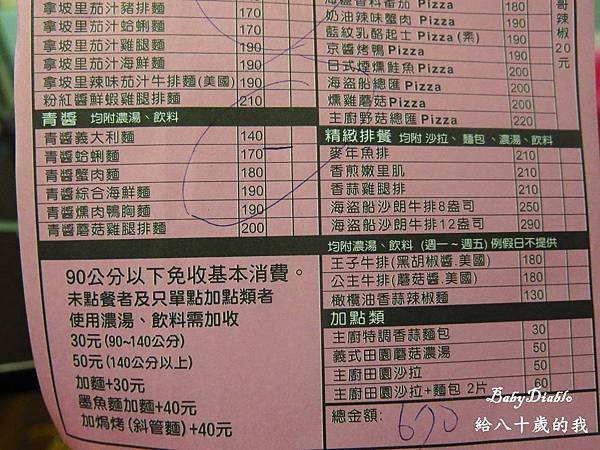 拿坡里茄汁豬排麵 170
拿坡里茄汁蛤蜊麵 170
拿坡里茄汁雞腿麵 190
拿坡里茄汁海鮮麵 190
拿坡里辣味茄汁牛排麵(美國) 190
粉紅醬鮮蝦雞腿排麵 210
青醬 均附濃湯、飲料
青醬義大利麵 140
青醬蛤蜊麵 170
青醬蟹肉麵 180
青醬綜合海鮮麵 190
青醬燻肉鴨胸麵 190
青醬蘑菇雞腿排麵 200
90公分以下免收基本消費。
未點餐者及只單點加點類者
使用濃湯、飲料需加收
30元(90~140公分)
50元(140公分以上)
加麵+30元
墨魚麵加麵+40元
加焗烤(斜管麵)+40元
180
奶油辣味蟹肉 Pizza 190
藍紋乳酪起士 Pizza (素) 190
京醬烤鴨 Pizza 190
日式煙燻鮭魚 Pizza 200
海盜船總匯 Pizza 200
燻雞蘑菇 Pizza 200
主廚野菇總匯 Pizza 220
哥辣椒20元
精緻排餐 均附 沙拉、麵包、濃湯、飲料
麥年魚排 210
香煎嫩里肌 210
香蒜雞腿排 210
海盜船沙朗牛排8盎司 250
海盜船沙朗牛排12盎司 290
均附濃湯、飲料 (週一~週五) 例假日不提供
王子牛排(黑胡椒醬.美國) 180
公主牛排(蘑菇醬.美國) 180
橄欖油香蒜辣椒麵 130
加點類
主廚特調香蒜麵包 30
義式田園蘑菇濃湯 50
主廚田園沙拉 50
主廚田園沙拉+麵包 2片 60
總金額: 690
BabyDiablo
給八十歲的我